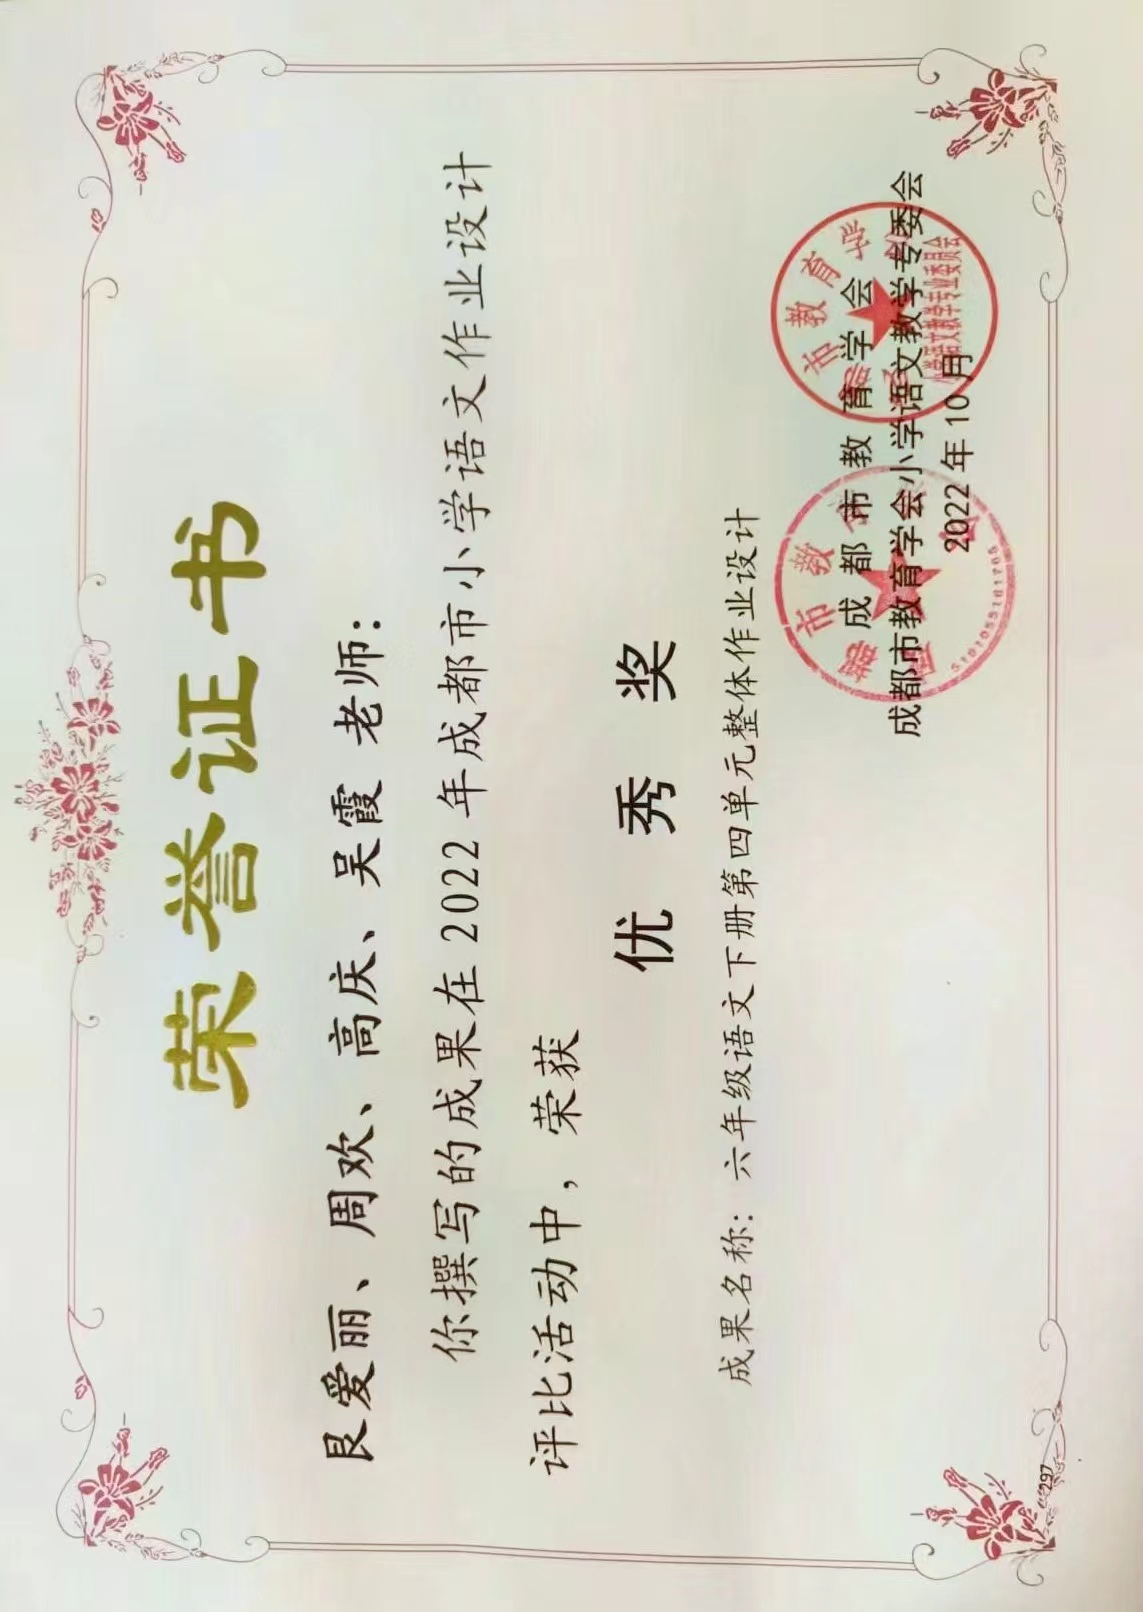 荣誉证书
艮爱丽、周欢、高庆、吴霞 老师：
你撰写的成果在 2022 年成都市小学语文作业设计
评比活动中，荣获
优 秀 奖
成果名称：六年级语文下册第四单元整体作业设计
成都市教育学会
成都市教育学会小学语文教学专委会
2022 年 10 月
市教育学
小学语文教学专业委员会
市教
5101055181705
297